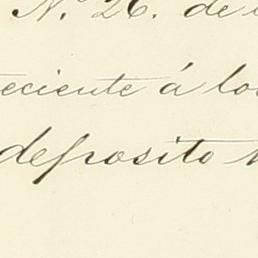 N.º 26. de
teciente á los
deposito